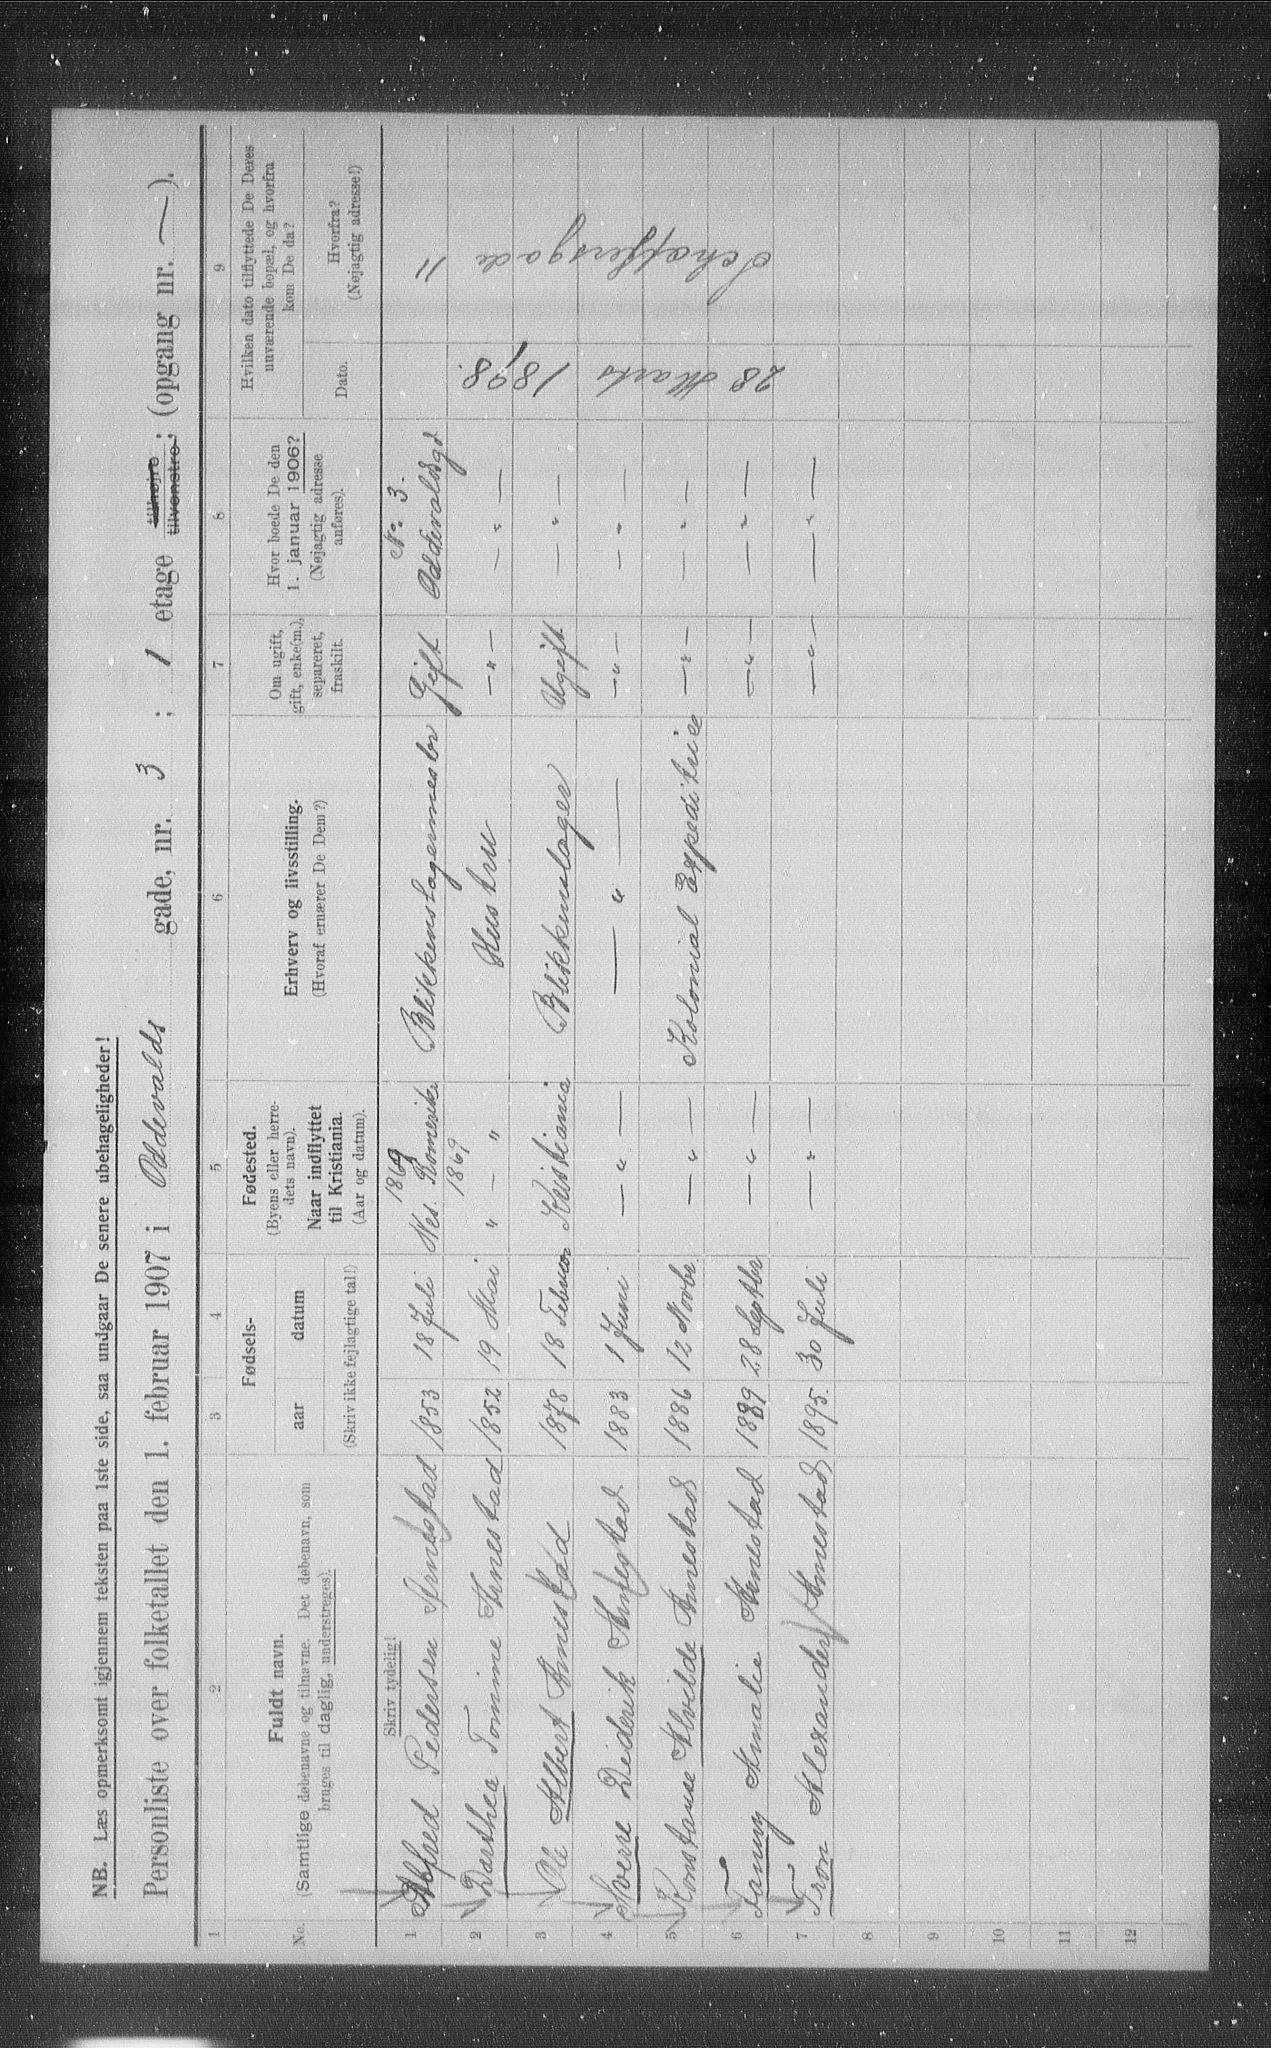 NB. Læs opmerksomt igjennem teksten paa 1ste side, saa undgaar De senere ubehageligheder!
Personliste over folketallet den 1. februar 1907 i Oddevalds gade, nr. 3 ; 1 etage tilhøjre tilvenstre; (opgang nr. — ).
1 2 3 4 5 6 7 8 9
No.
Fuldt navn.
(Samtlige døbenavne og tilnavne. Det døbenavn, som
bruges til daglig, understreges).
Fødsels-
aar datum
(Skriv ikke fejlagtige tal!)
Fødested.
(Byens eller herre-
dets navn).
Naar indflyttet
til Kristiania.
(Aar og datum).
Erhverv og livsstilling.
(Hvoraf ernærer De Dem?)
Om ugift,
gift, enke(m.),
separeret,
fraskilt.
Hvor boede De den
1. januar 1906?
(Nøjagtig adresse
anføres).
Hvilken dato tilflyttede De Deres
nuværende bopæl, og hvorfra
kom De da?
Dato.
Hvorfra?
(Nøjagtig adresse!)
Skriv tydelig!
1869 No 3.
1 Alfred Pedersen Arnestad 1853 18 Juli Nes. Romerike Blikkenslagermester Gift Oddevaldsgd
1869
2 Dorthea Tomine Arnestad 1852 19 Mai " — " Hustru — " — — " —
3 Ole Albert Arnestad 1878 18 Februar Kristiania Blikkenslager Ugift — " —
4 Sverre Diderik Arnestad 1883 1 Juni — " — — " — — " — — " —
5 Konstanse Alvilde Arnestad 1886 12 Novbr. — " — Kolonial Expeditrice — " — — " —
6 Fanny Amalie Arnestad 1889 28 Septbr — " — — " — — " —
7 Tron Alexander Arnestad 1895. 30 Juli — " — — " — — " —
28 Marts 1898. Schaffersgade 11
8
9
10
11
12